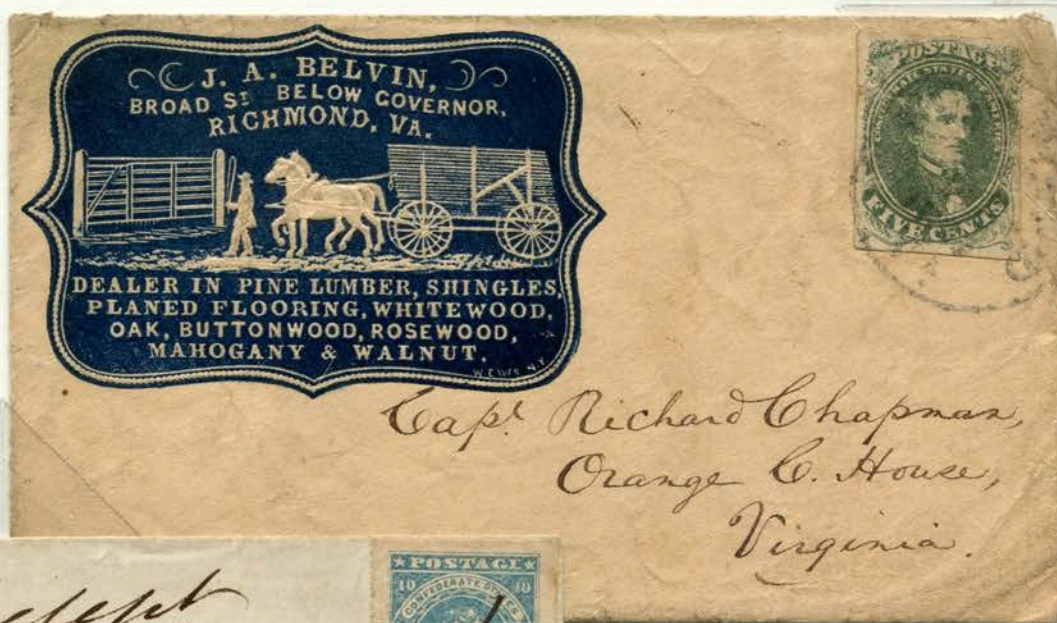 J. A. BELVIN,
BROAD ST BELOW GOVERNOR,
RICHMOND, VA.
DEALER IN PINE LUMBER, SHINGLES,
PLANED FLOORING, WHITEWOOD,
OAK, BUTTONWOOD, ROSEWOOD,
MAHOGANY & WALNUT.
N.Y.
POSTAGE
FIVE CENTS
Capt. Richard Chapman,
Orange C. House,
Virginia.
POSTAGE
10 10
CONFEDERATE STATES